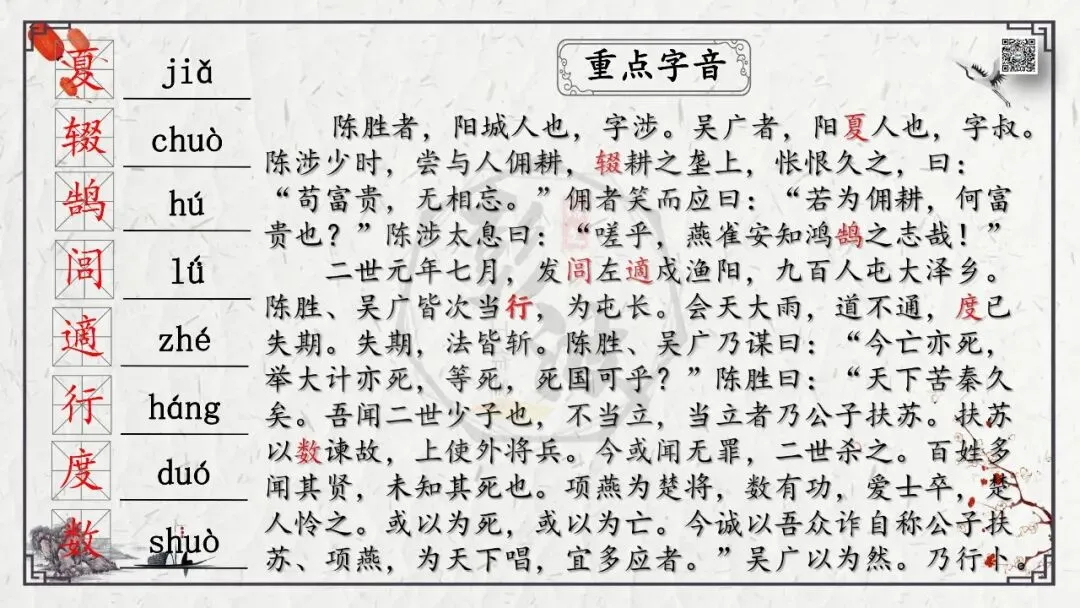 重点字音
夏 jiǎ
辍 chuò
鹄 hú
闾 lǘ
適 zhé
行 háng
度 duó
数 shuò
陈胜者，阳城人也，字涉。吴广者，阳夏人也，字叔。
陈涉少时，尝与人佣耕，辍耕之垄上，怅恨久之，曰：
“苟富贵，无相忘。”佣者笑而应曰：“若为佣耕，何富
贵也？”陈涉太息曰：“嗟乎，燕雀安知鸿鹄之志哉！”
二世元年七月，发闾左適戍渔阳，九百人屯大泽乡。
陈胜、吴广皆次当行，为屯长。会天大雨，道不通，度已
失期。失期，法皆斩。陈胜、吴广乃谋曰：“今亡亦死，
举大计亦死，等死，死国可乎？”陈胜曰：“天下苦秦久
矣。吾闻二世少子也，不当立，当立者乃公子扶苏。扶苏
以数谏故，上使外将兵。今或闻无罪，二世杀之。百姓多
闻其贤，未知其死也。项燕为楚将，数有功，爱士卒，楚
人怜之。或以为死，或以为亡。今诚以吾众诈自称公子扶
苏、项燕，为天下唱，宜多应者。”吴广以为然。乃行卜。